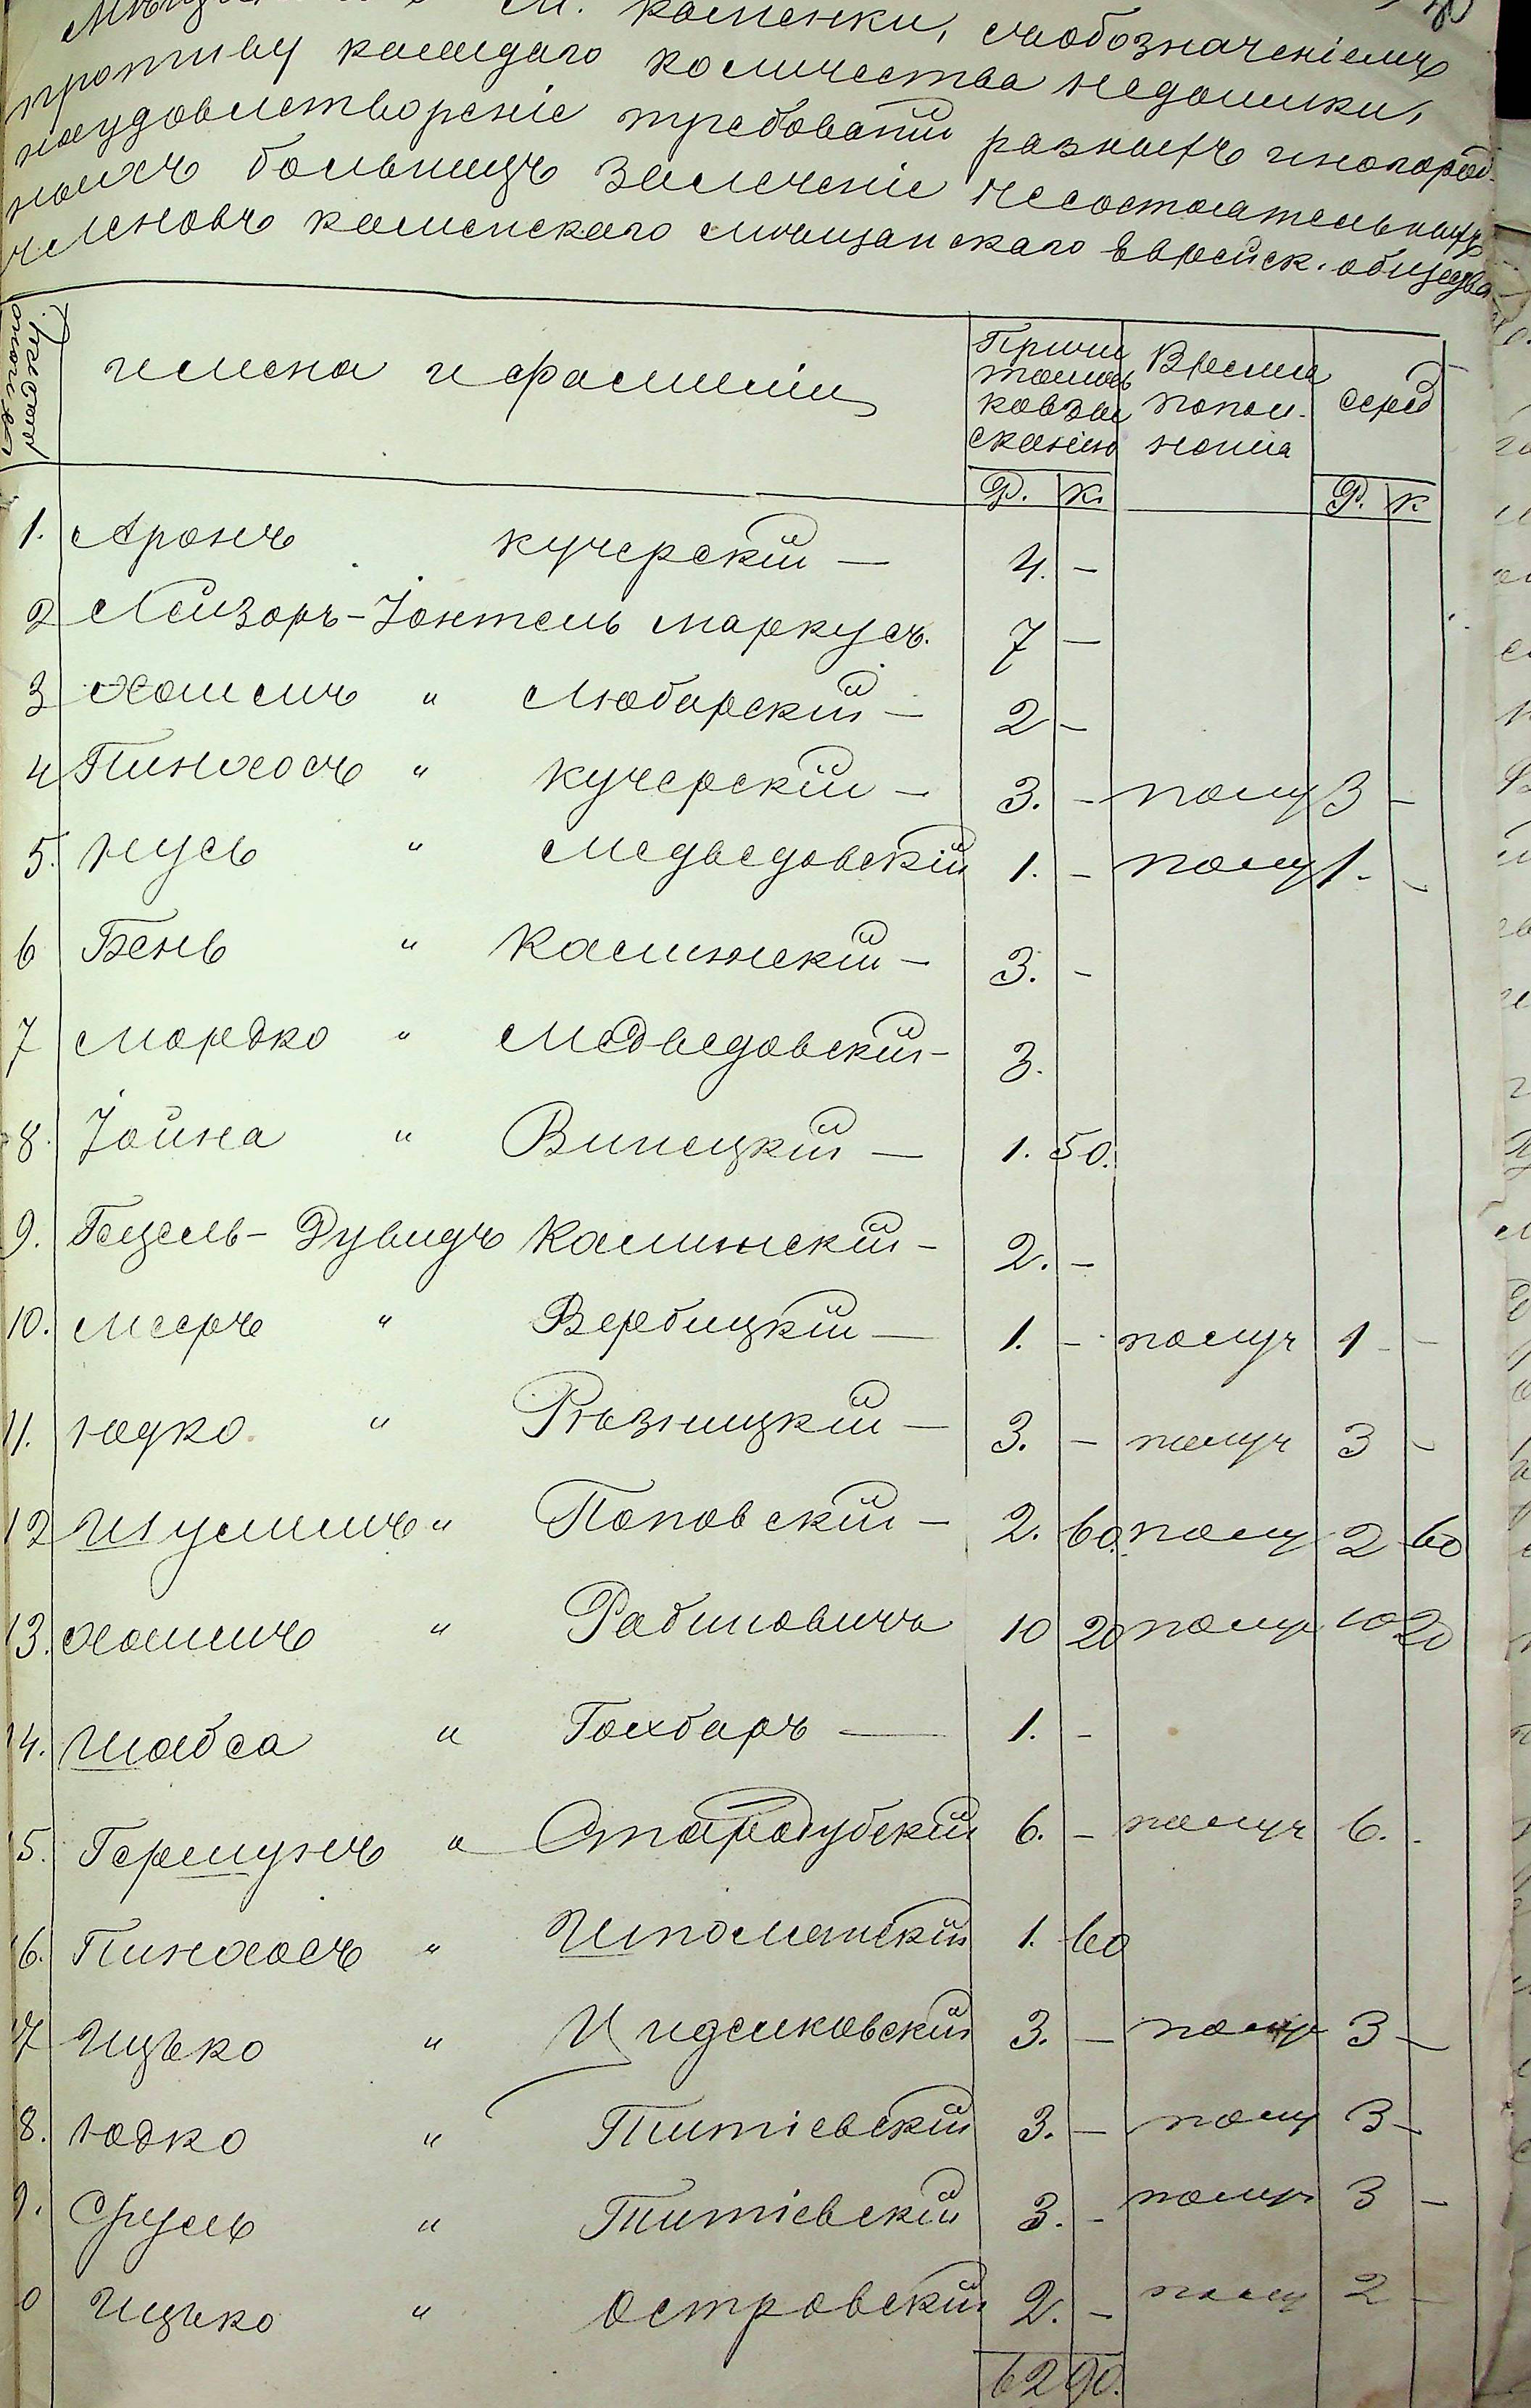 м. Каменки, съобозначеніемъ
противу каждаго количества недоимки,
наудовлетвореніе требованій разныхъ иногород-
ныхъ больницъ залеченіе несостоятельныхъ
членовъ каменскаго мѣщанскаго еврейск. общества
имена и фамиліи
Причи Время серед
таюсь попол-
ковзы ненія
сканію
Р. К. Р. К
1. Аронъ Кучерскій — 4. —
2 Лейзоръ-Іонтель Маркусъ. 7 —
3 Хаимъ " Любарскій — 2 —
4 Пинхосъ " Кучерскій — 3. — полу 3 —
5. Нусь " Медведовскій 1. — полу 1. —
6 Бень " Калинскій — 3. —
7 Мордко " Медведовскій — 3.
8. Іойна " Винецкій — 1. 50.
9. Гецель - Дувидъ Калинскій — 2. —
10. Мееръ " Вербицкій — 1. — получ 1 —
11. Юдко " Рѣзницкій — 3. — получ 3 —
12 Шулимъ " Поповскій — 2. 60. полу 2 60
13. Хаимъ " Рабиновичъ 10 20 полу 10 20
14. Шабса " Гохбаръ — 1. —
5. Гершунъ " Стародубскій 6. — получ 6. -
6. Пинхосъ " Шполянскій 1. 60
7 Ицько " Цидилковскій 3. — полу 3 —
8. Юдко " Титіевскій 3. — полу 3 —
9. Сруль " Титіевскій 3. - получ 3 —
0 Ицько " Островскій 2. — полу 2 —
62 90.